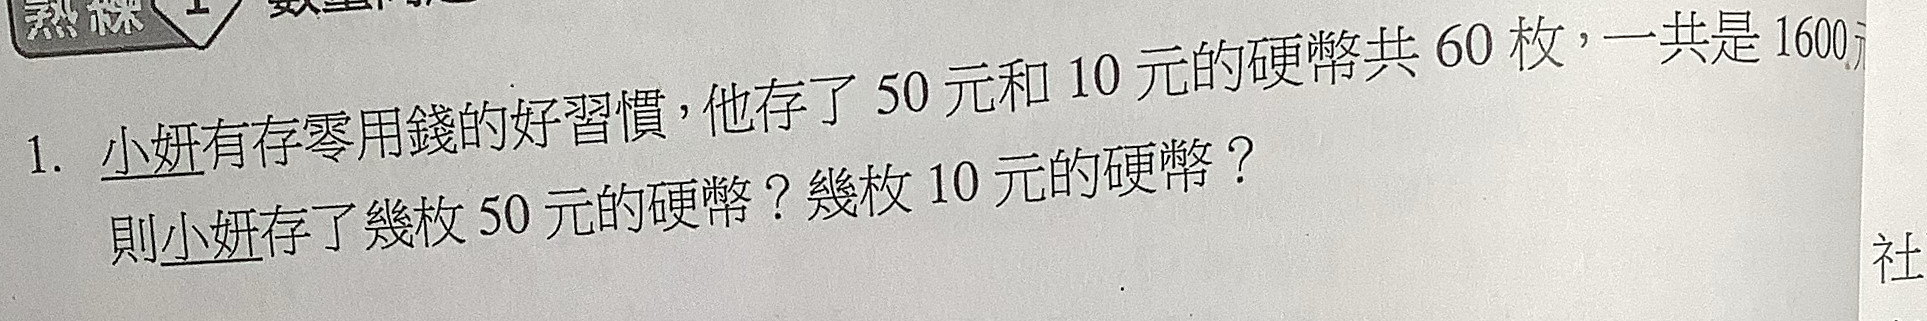 熟練 1
1. 小妍有存零用錢的好習慣，他存了 50 元和 10 元的硬幣共 60 枚，一共是 1600元
則小妍存了幾枚 50 元的硬幣？幾枚 10 元的硬幣？
社